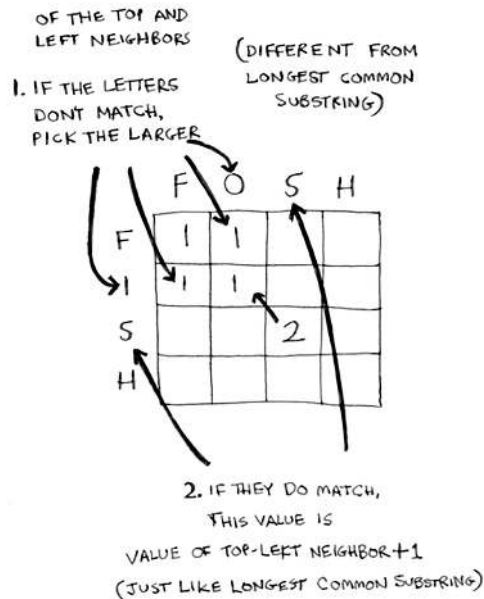 OF THE TOP AND
LEFT NEIGHBORS
(DIFFERENT FROM
LONGEST COMMON
SUBSTRING)
1. IF THE LETTERS
DON'T MATCH,
PICK THE LARGER
F O S H
F 1 1
I 1 1
S 2
H
2. IF THEY DO MATCH,
THIS VALUE IS
VALUE OF TOP-LEFT NEIGHBOR +1
(JUST LIKE LONGEST COMMON SUBSTRING)